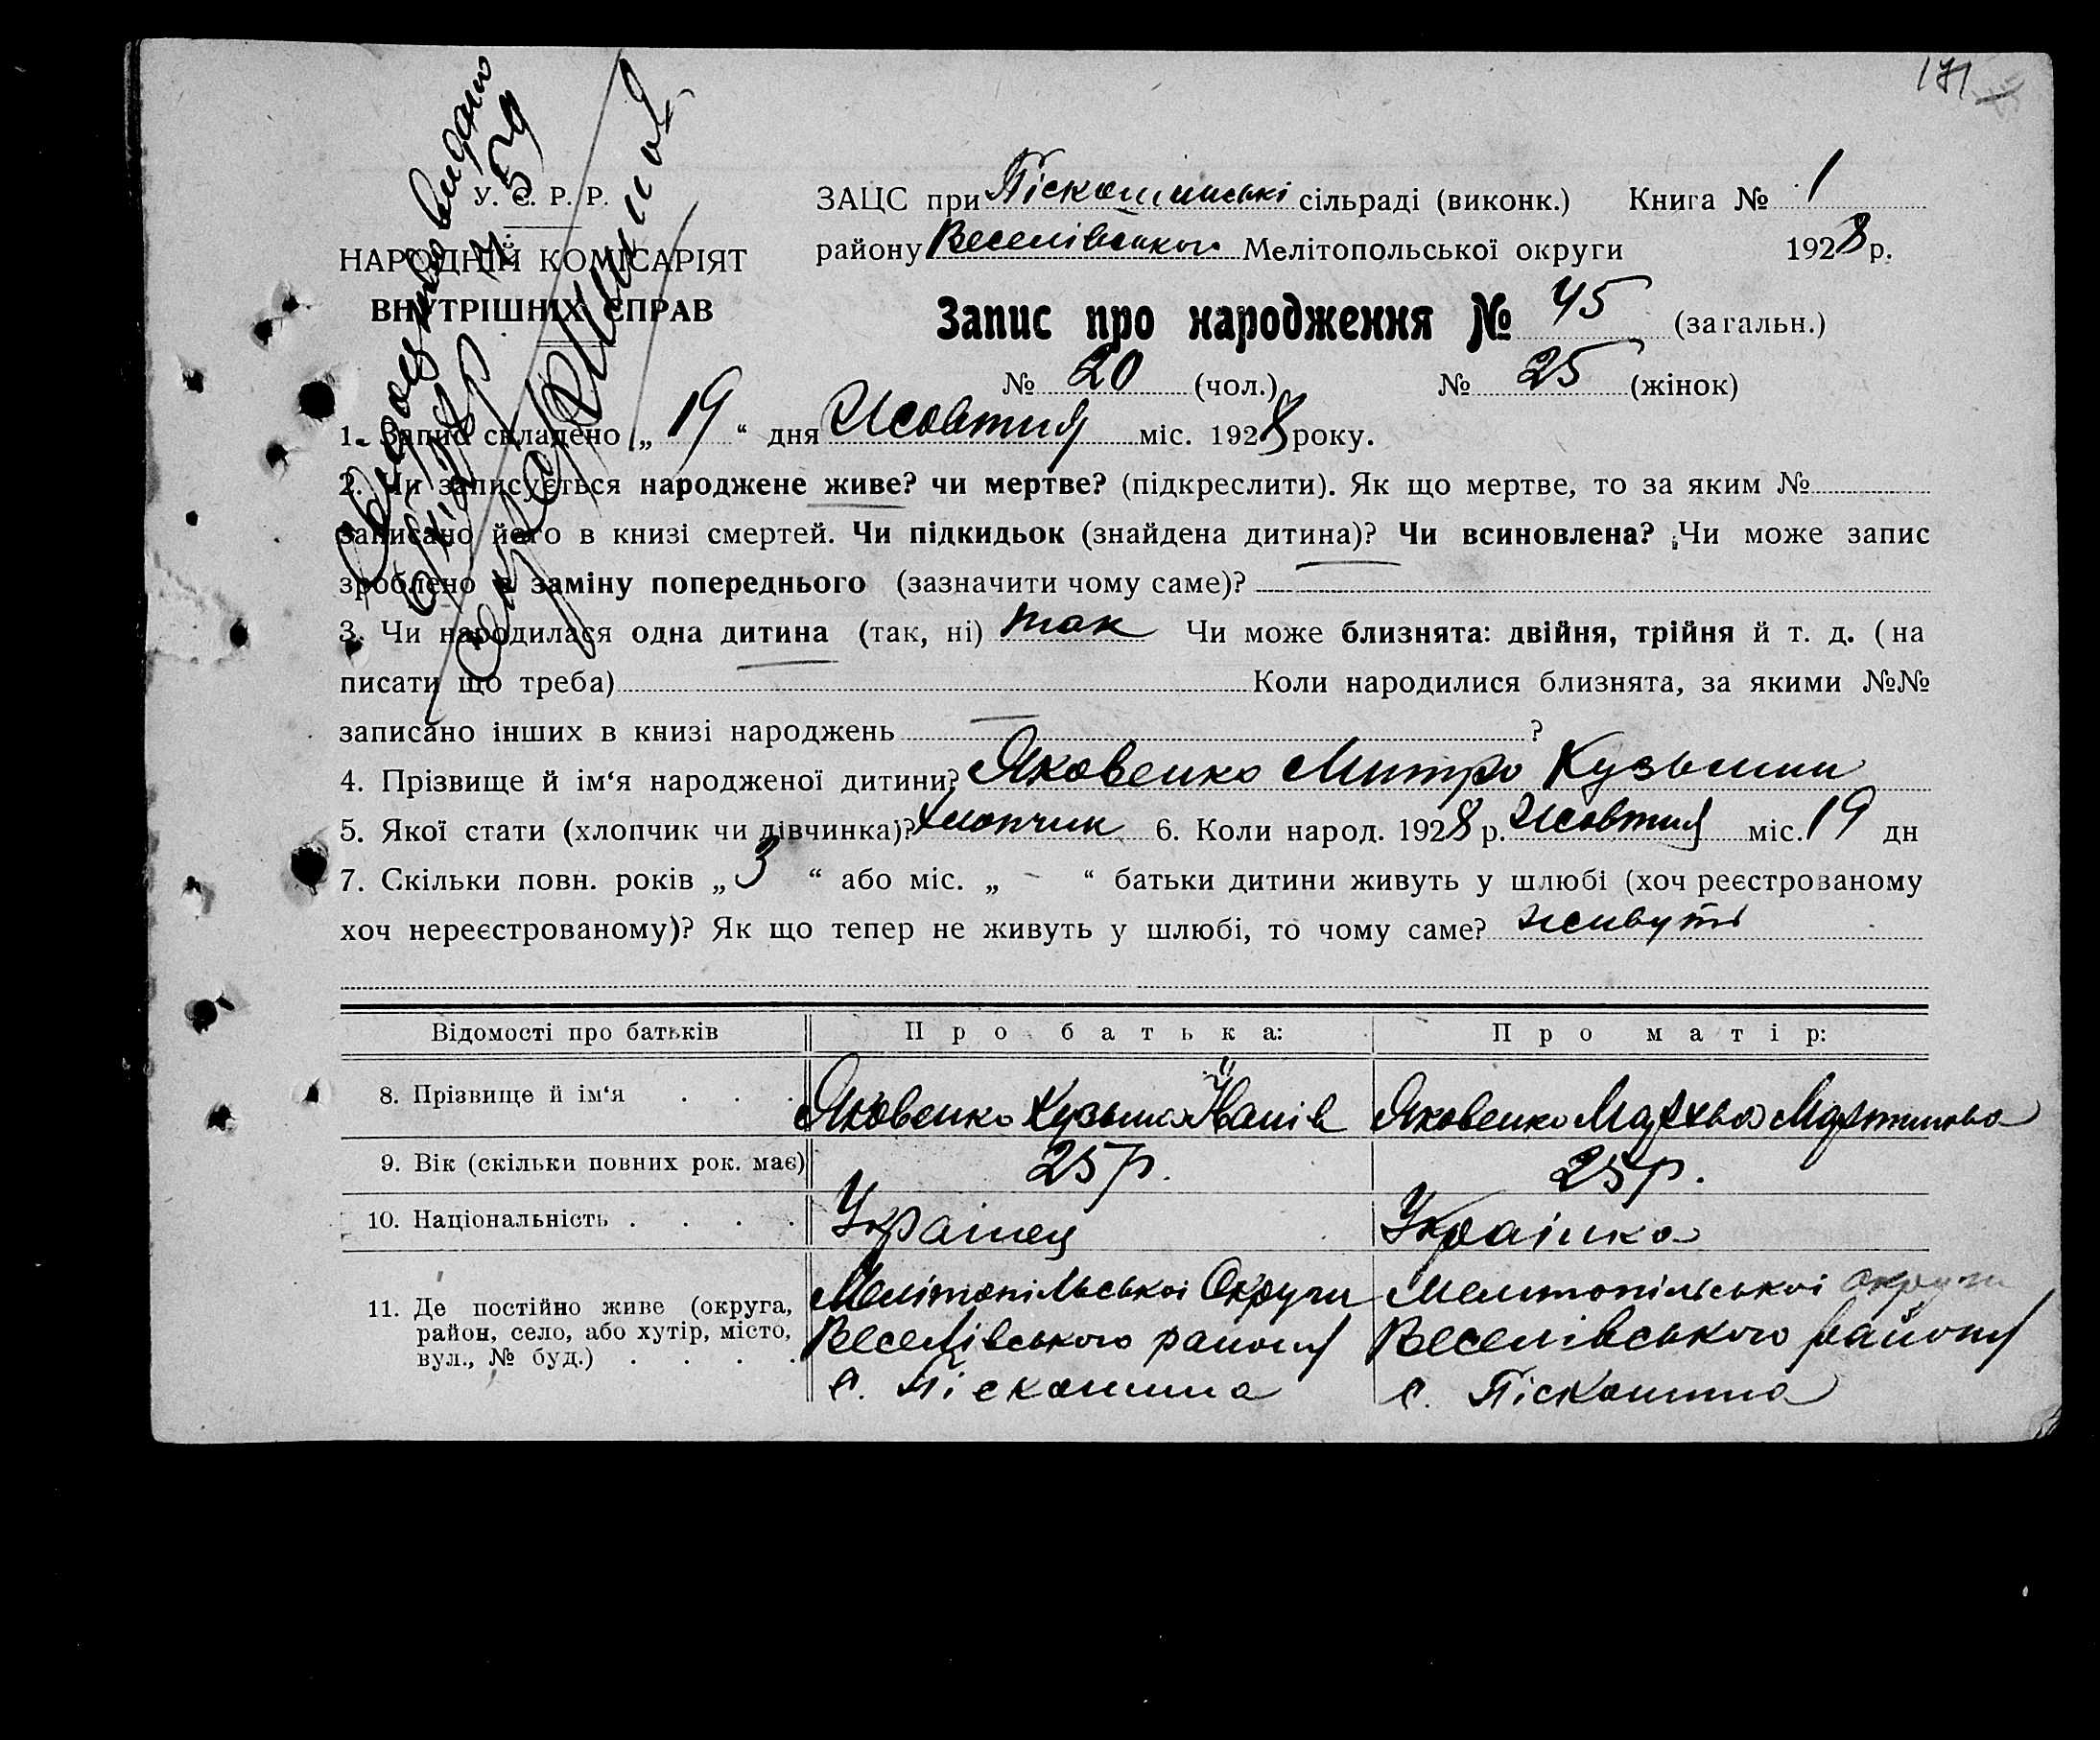 171
У. С. Р. Р.
НАРОДНІЙ КОМІСАРІЯТ
ВНУТРІШНІХ СПРАВ
ЗАЦС при Піскошинські сільраді (виконк.) Книга № 1
району Веселівського Мелітопольської округи 1928 р.
Запис про народження № 45 (загальн.)
№ 20 (чол.) № 25 (жінок)
1. Запис складено „ 19 “ дня Жовтня міс. 1928 року.
2. Чи записується народжене живе? чи мертве? (підкреслити). Як що мертве, то за яким №
записано його в книзі смертей. Чи підкидьок (знайдена дитина)? Чи всиновлена? Чи може запис
зроблено в заміну попереднього (зазначити чому саме)?
3. Чи народилася одна дитина (так, ні) так Чи може близнята: двійня, трійня й т. д. (на
писати що треба) Коли народилися близнята, за якими №№
записано інших в книзі народжень ?
4. Прізвище й ім‘я народженої дитини? Яковенко Митро Кузьмин
5. Якої стати (хлопчик чи дівчинка)? хлопчик 6. Коли народ. 1928 р. Жовтня міс. 19 дн
7. Скільки повн. років „ 3 “ або міс. „ - “ батьки дитини живуть у шлюбі (хоч реєстрованому
хоч нереєстрованому)? Як що тепер не живуть у шлюбі, то чому саме? живуть
Відомості про батьків Про батька: Про матір:
8. Прізвище й ім‘я . . . Яковенко Кузьма Іванів Яковенко Мархва Мартинова
9. Вік (скільки повних рок. має) 25 р. 25 р.
10. Національність . . . . Українец Українка
11. Де постійно живе (округа, район, село, або хутір, місто, вул., № буд.) . . . .
Мелітопільської Округи Мелитопільської округи
Веселівського району Веселівського району
с. Піскошина с. Піскошина